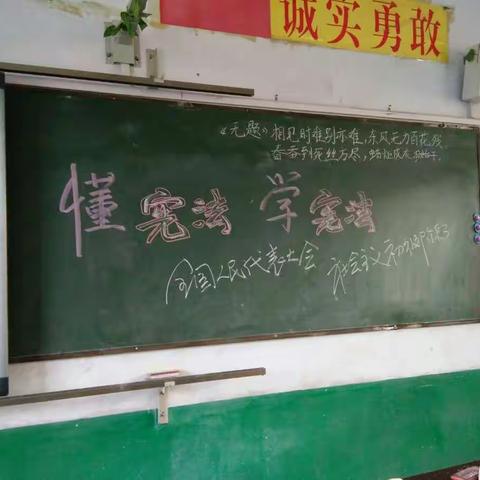 诚实勇敢
《无题》相见时难别亦难,东风无力百花残,
春蚕到死丝方尽,蜡炬成灰泪始干。
懂宪法 学宪法
全国人民代表大会 社会主义初级阶段